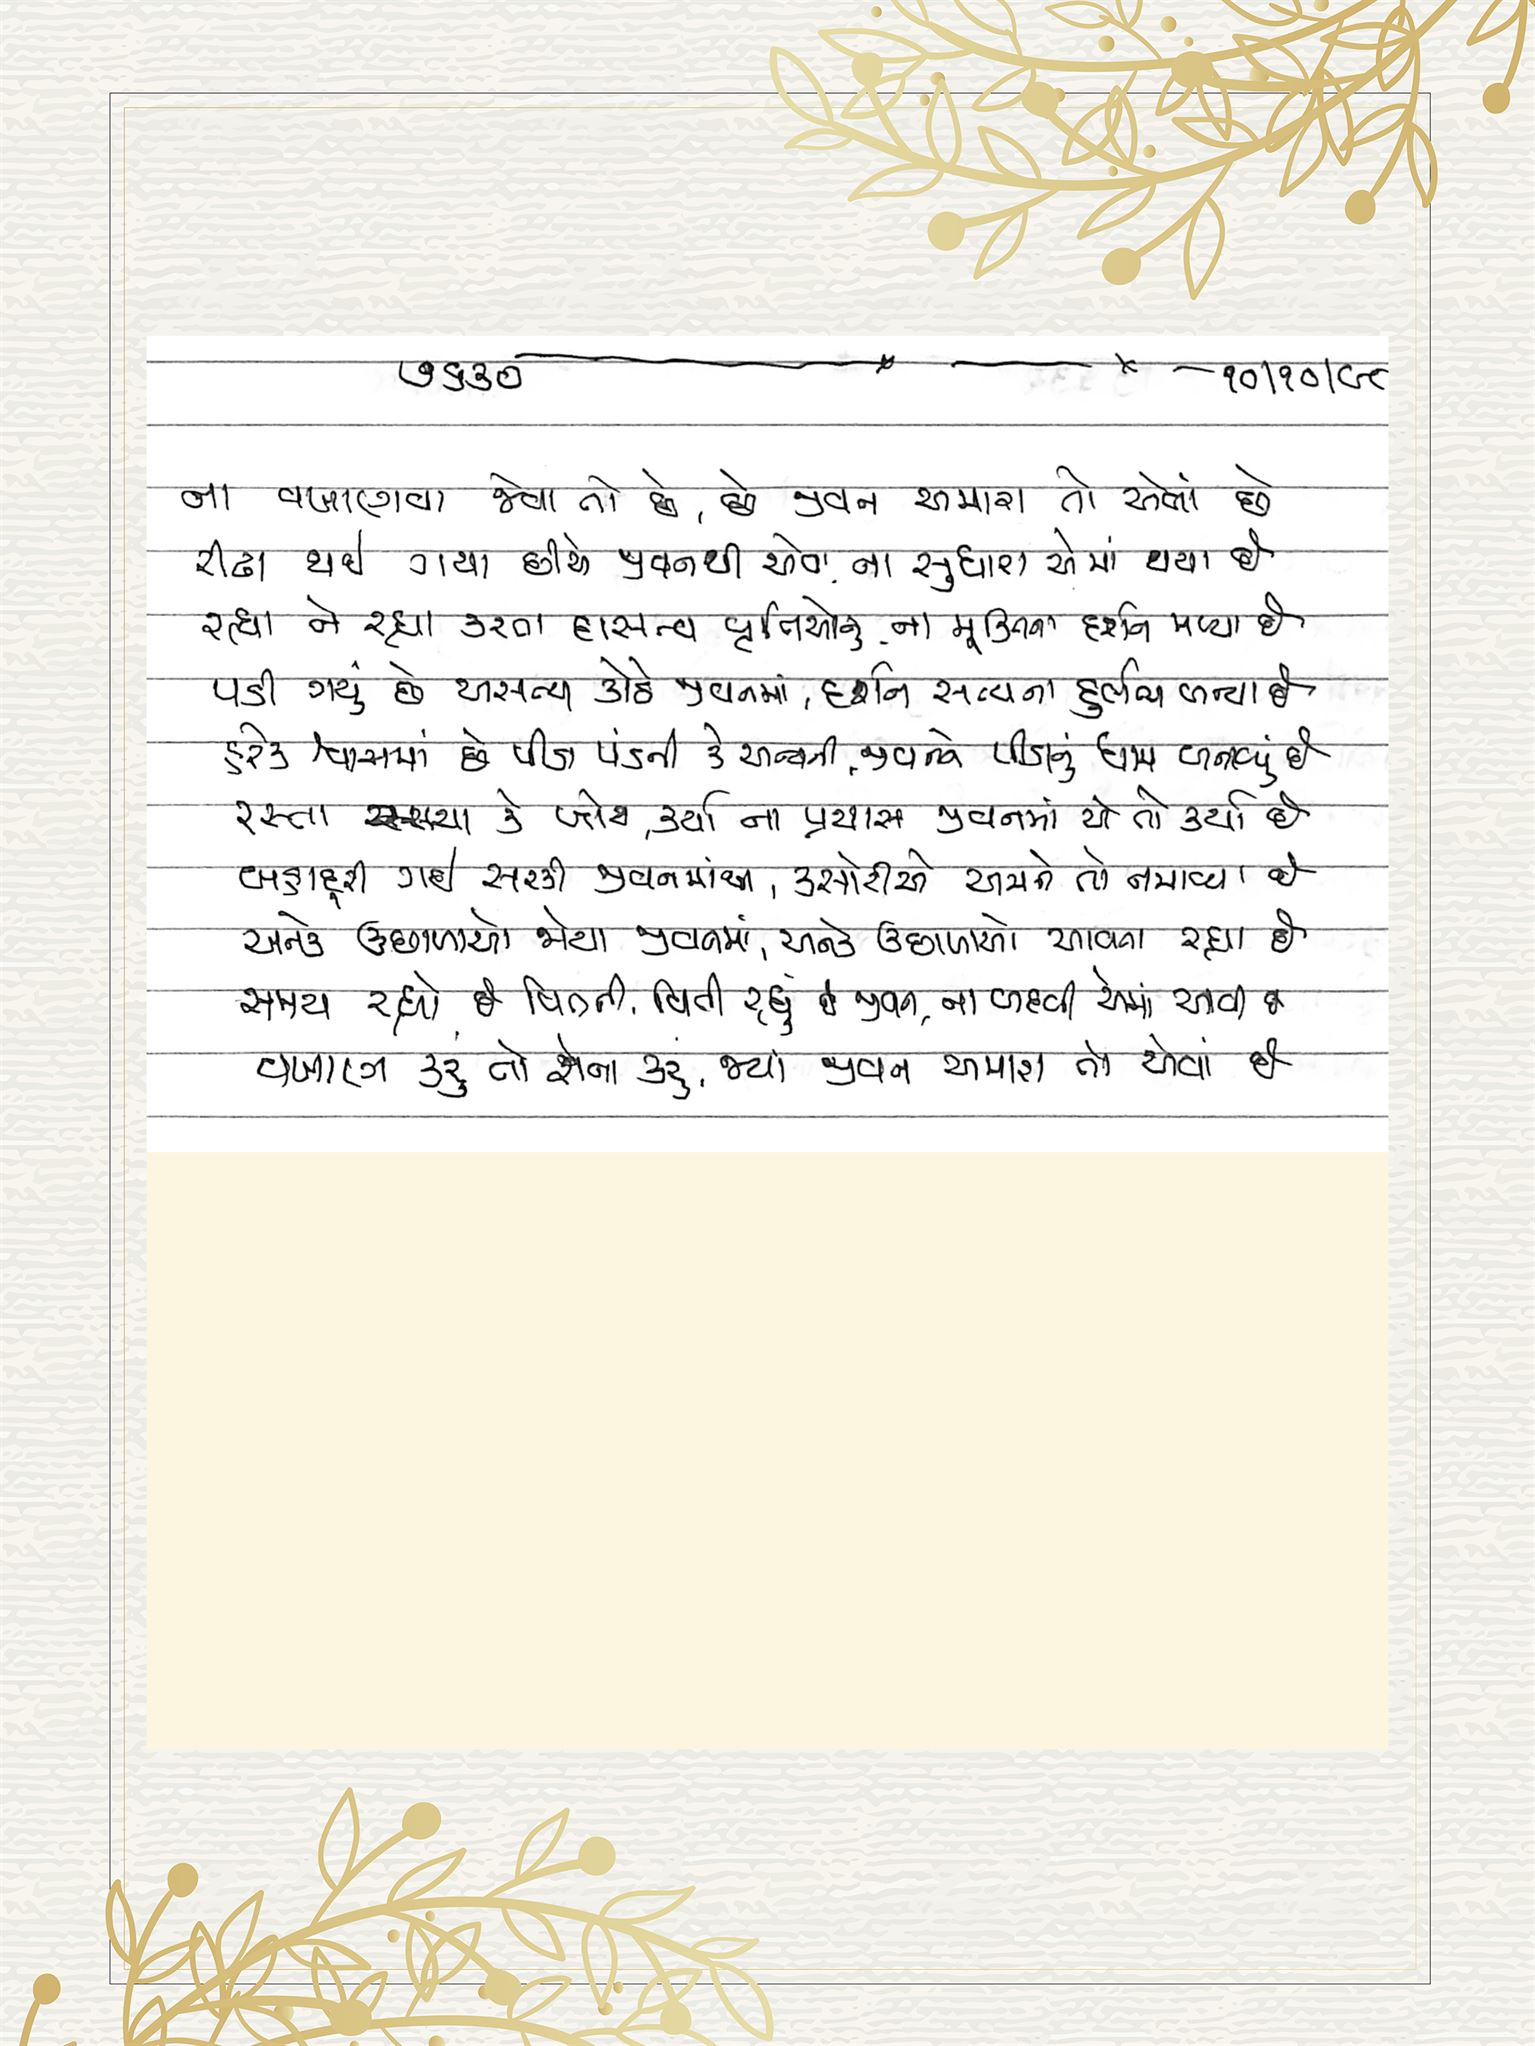 ૭૬૩૦ ૧૦/૧૦/૯૮
ના વખાણવા જેવા તો છે, છે જીવન અમારા તો એવાં છે
રીઢા થઈ ગયા છીએ જીવનથી એવા, ના સુધારા એમાં થયા છે
રહ્યા ને રહ્યા કરતા વૃત્તિઓનું, ના મુક્તિના દર્શન મળ્યા છે
પડી ગયું છે અસત્ય કોઠે જીવનમાં, દર્શન સત્યના દુર્લભ બન્યા છે
હરેક શ્વાસમાં છે પીડા પંડની કે અન્યની, જીવનને પીડાનું ધામ બનાવ્યું છે
રસ્તા સાચા કે ખોટા, કર્યા ના પ્રયાસ જીવનમાં એ તો કર્યા છે
બહાદૂરી ગઈ સરકી જીવનમાંથી, કસોટીએ અમને તો નમાવ્યા છે
અનેક ઉછાળાઓ જોયા જીવનમાં, અનેક ઉછાળાઓ આવતા રહ્યા છે
સમય રહ્યો છે વિતતો, વિતી રહ્યું છે જીવન, ના બદલી એમાં આવી છે
વખાણ કરું તો શેના કરું, જ્યાં જીવન અમારા તો એવાં છે